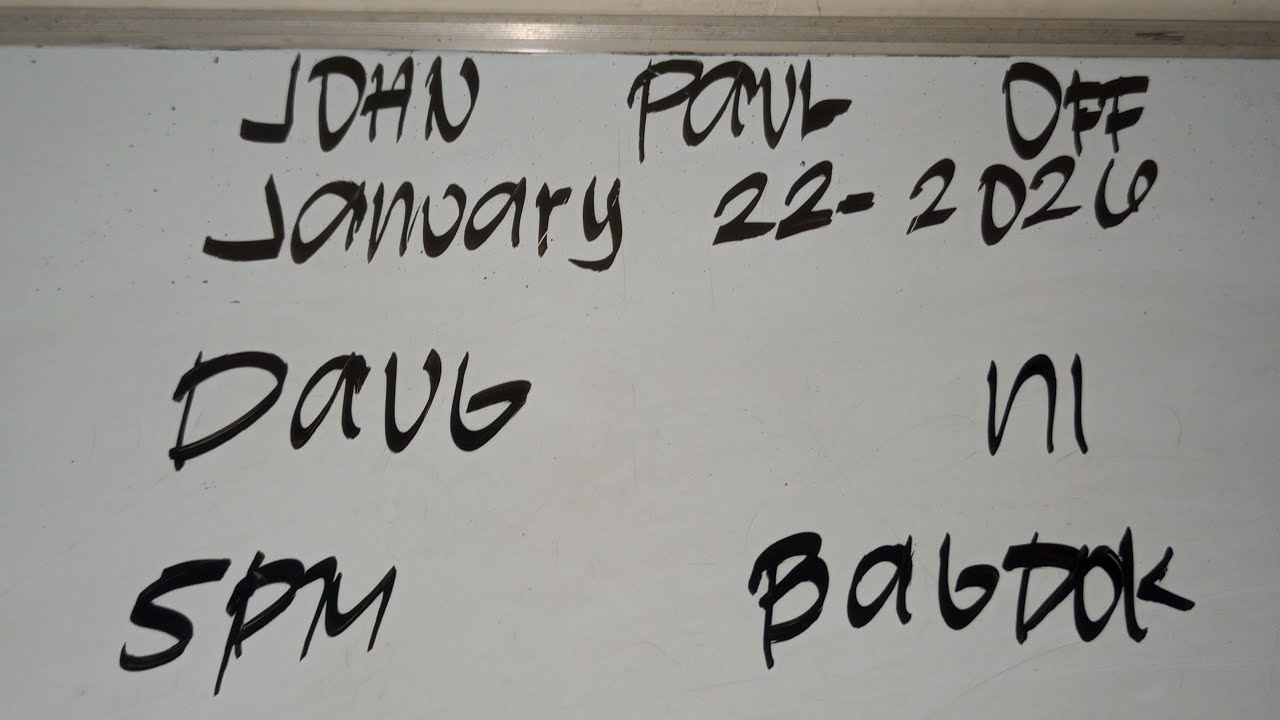 JOHN PAUL OFF
January 22-2026
Daub ni
5PM Babdok